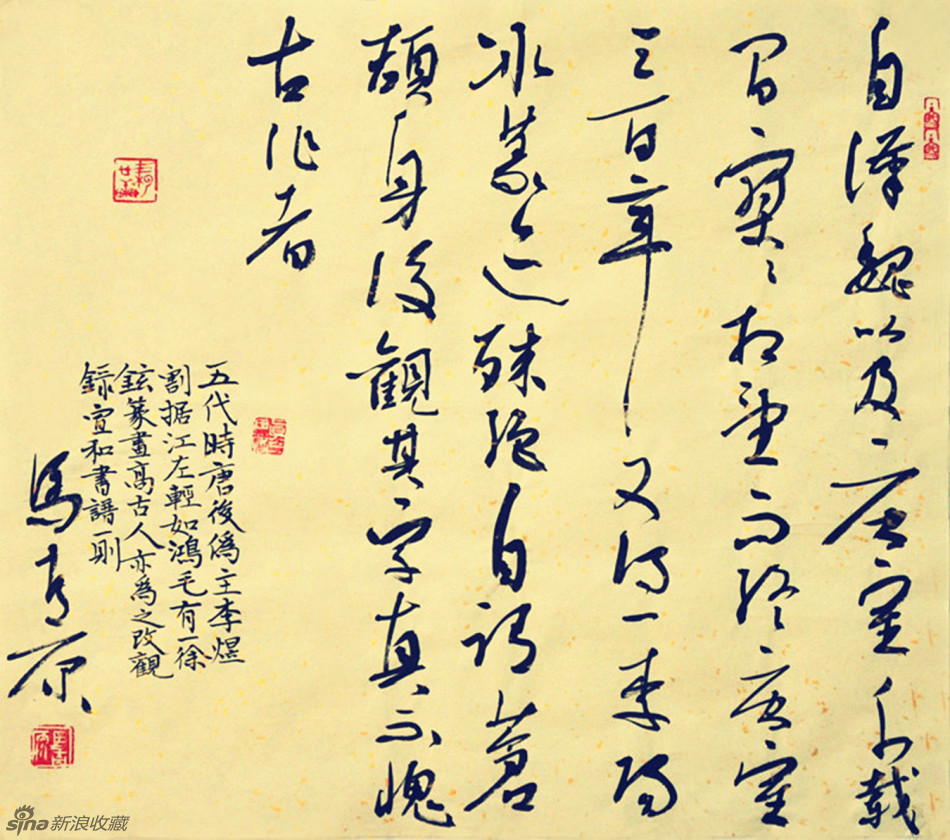 自漢魏以及唐室千載
間寥〻相望而終唐室
三百年又得一李陽
冰篆迹殊絕自謂蒼
頡身後觀其字真不愧
古作者
五代時唐後僞主李煜
割据江左輕如鴻毛有一徐
鉉篆畫高古人亦為之改觀
錄宣和書譜一則
馬 原
sina新浪收藏